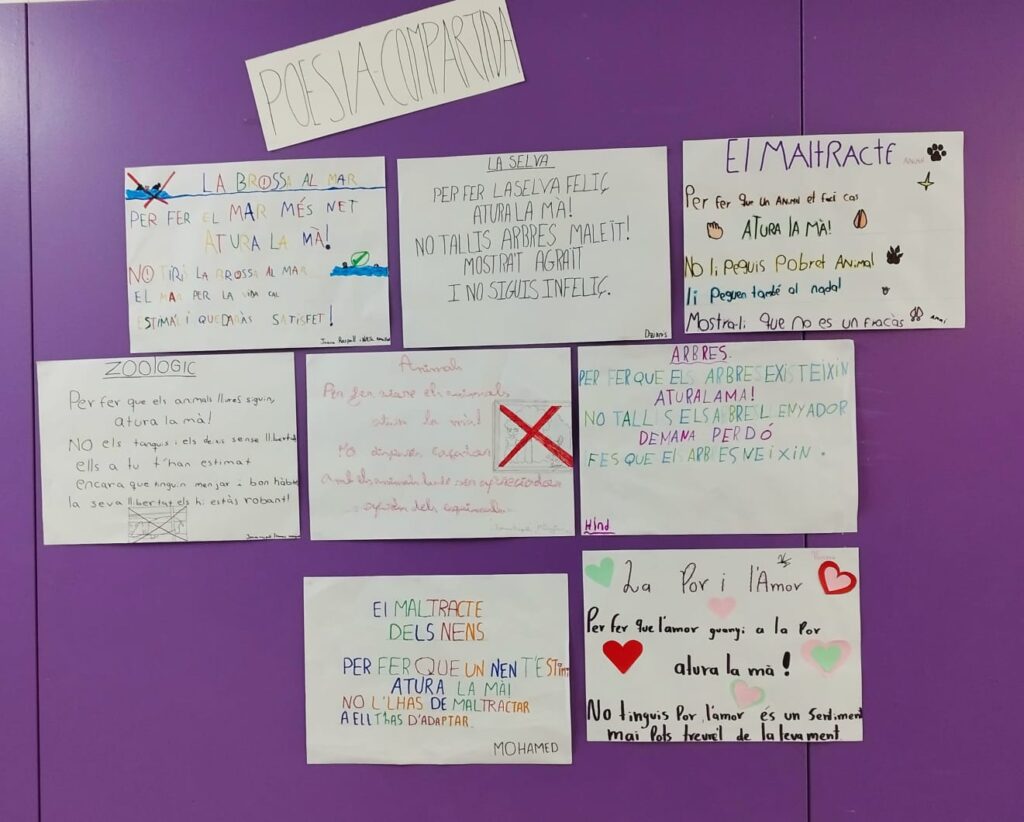 POESIA COMPARTIDA
LA BROSSA AL MAR
PER FER EL MAR MÉS NET
ATURA LA MÀ!
NO TIRIS LA BROSSA AL MAR
EL MAR PER LA VIDA CAL
ESTIMA'L I QUEDARÀS SATISFET!
LA SELVA
PER FER LA SELVA FELIÇ
ATURA LA MÀ!
NO TALLIS ARBRES MALEÏT!
MOSTRA'T AGRAÏT
I NO SIGUIS INFELIÇ.
El MALTRACTE ANIMAL
Per fer que un ANIMAl et faci cas
ATURA lA MÀ!
No li peguis Pobret Animal
li Peguen també al nadal
Mostra-li que no es un fracàs
ZOOLOGIC
Per fer que els animals lliures siguin,
atura la mà!
NO els tanquis i els deixis sense llibertat
ells a tu t'han estimat
encara que tinguin menjar i bon hàbitat
la seva llibertat els hi estàs robant!
Animals
Per fer viure els animals
atura la mà!
No disparis caçador
ARBRES.
PER FER QUE ELS ARBRES EXISTEIXIN
ATURA LA MA!
NO TALLIS ELS ARBRES LLENYADOR
DEMANA PERDÓ
FES QUE ELS ARBRES NEIXIN.
Hind
El MALTRACTE
DELS NENS
PER FER QUE UN NEN T'ESTIMI
ATURA LA MÀ!
NO L'LHAS DE MALTRACTAR
A ELL T'HAS D'ADAPTAR.
MOHAMED
La Por i l'Amor
Per fer que l'amor guanyi a la Por
atura la mà!
No tinguis Por, l'amor és un Sentiment
mai Pots treure'l de la teva ment